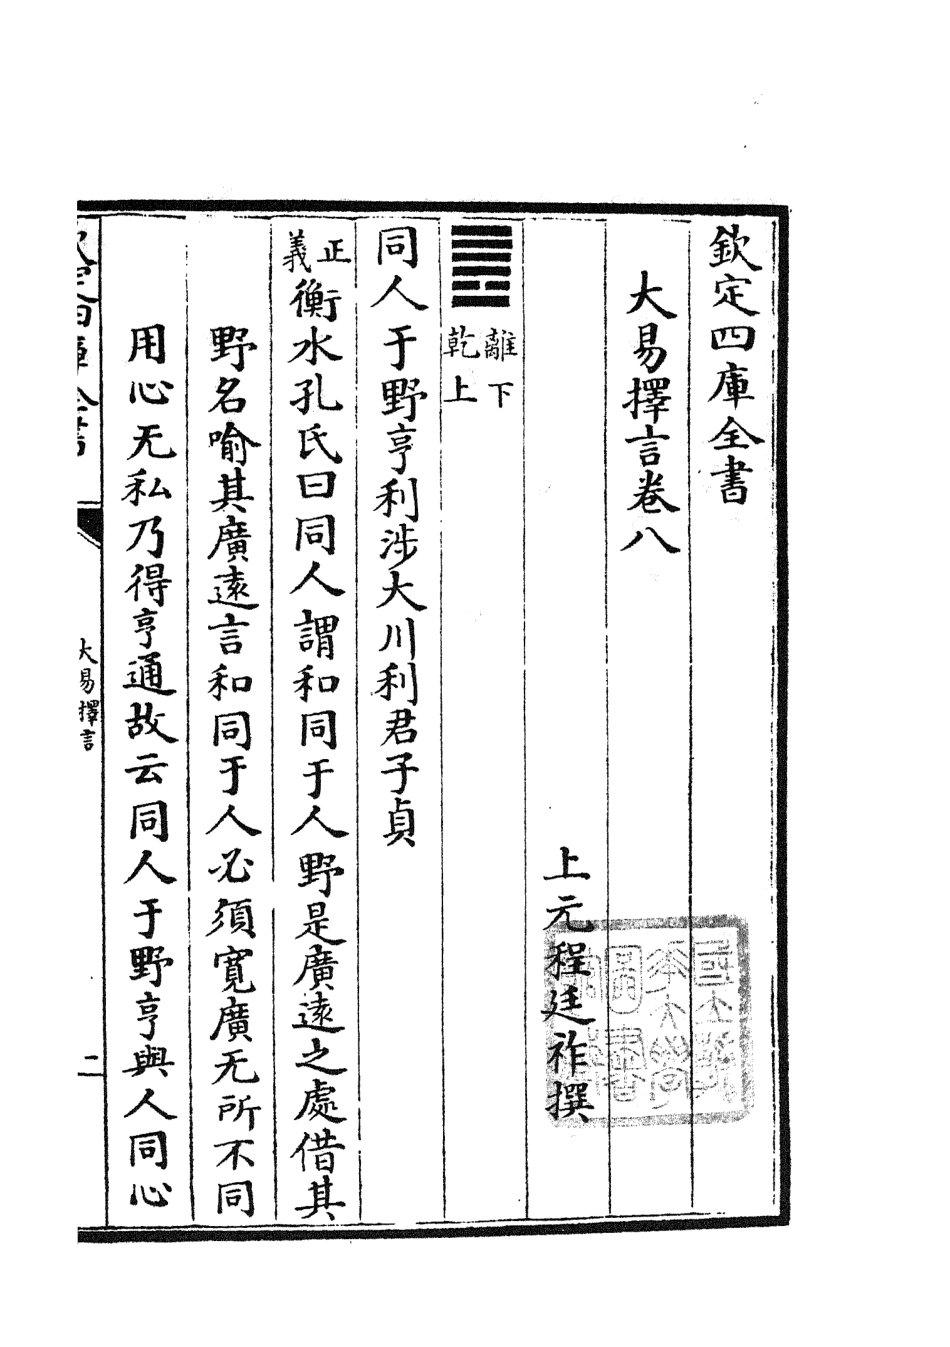 欽定四庫全書
大易擇言卷八
上元程廷祚撰
䷌離下
乾上
同人于野亨利涉大川利君子貞
正義衡水孔氏曰同人謂和同于人野是廣遠之處借其
野名喻其廣遠言和同于人必須寛廣无所不同
用心无私乃得亨通故云同人于野亨與人同心
大易擇言